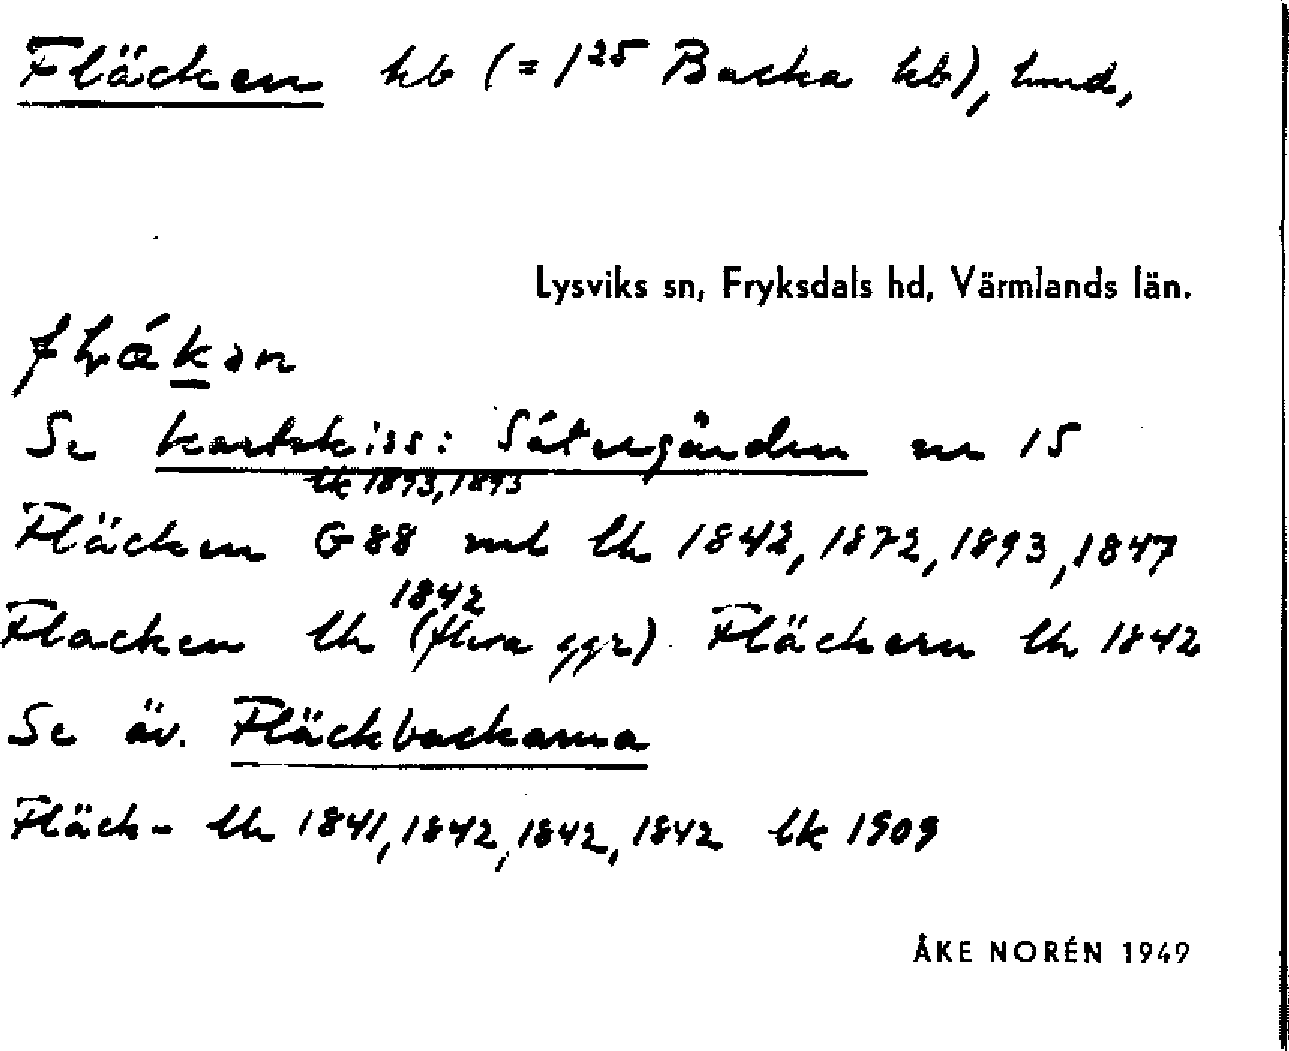 Fläcken hb (= 1²⁵ Backa hb), hmd,
Lysviks sn, Fryksdals hd, Värmlands län.
Se kartskiss: Sätergården nr 15
lk 1893, 1893
Fläcken G88 lh 1842, 1872, 1893, 1847
1842
Flacken lh (flera ggr) Fläckern lh 1842
Se äv. Fläckbackarna
Fläck- lh 1841, 1842, 1842, 1842 lk 1909
ÅKE NORÉN 1949